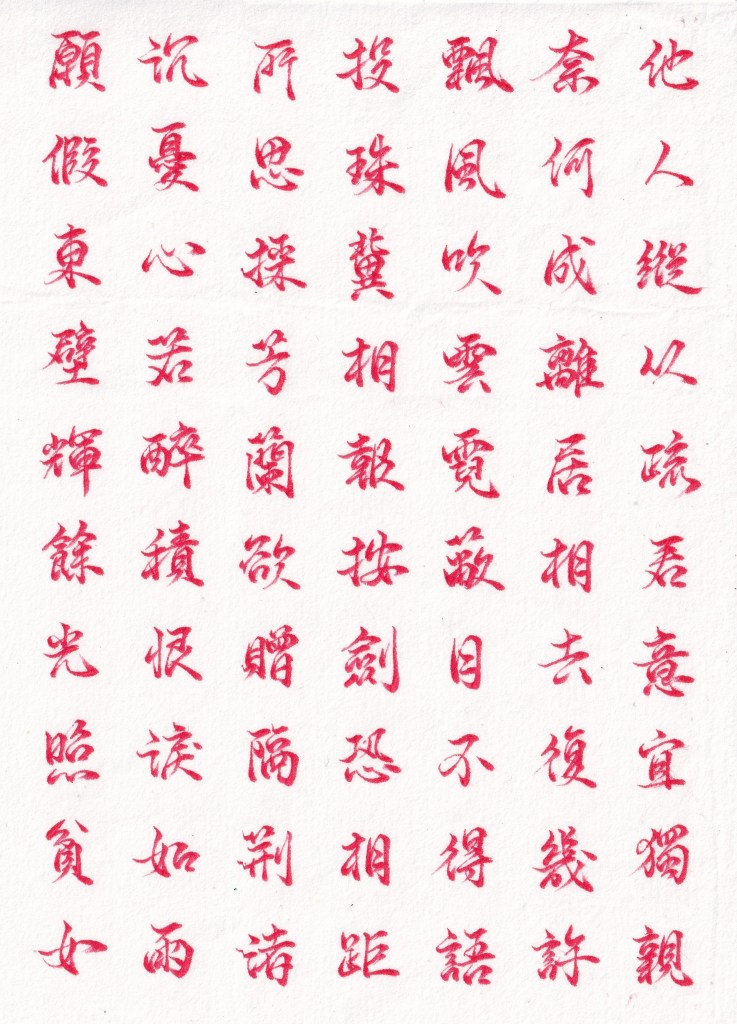 他人縱以疏君意宜獨親
奈何成離居相去復幾許
飄風吹雲霓蔽目不得語
投珠冀相報按劍恐相距
所思採芳蘭欲贈隔荊渚
沉憂心若醉積恨淚如雨
願假東壁輝餘光照貧女